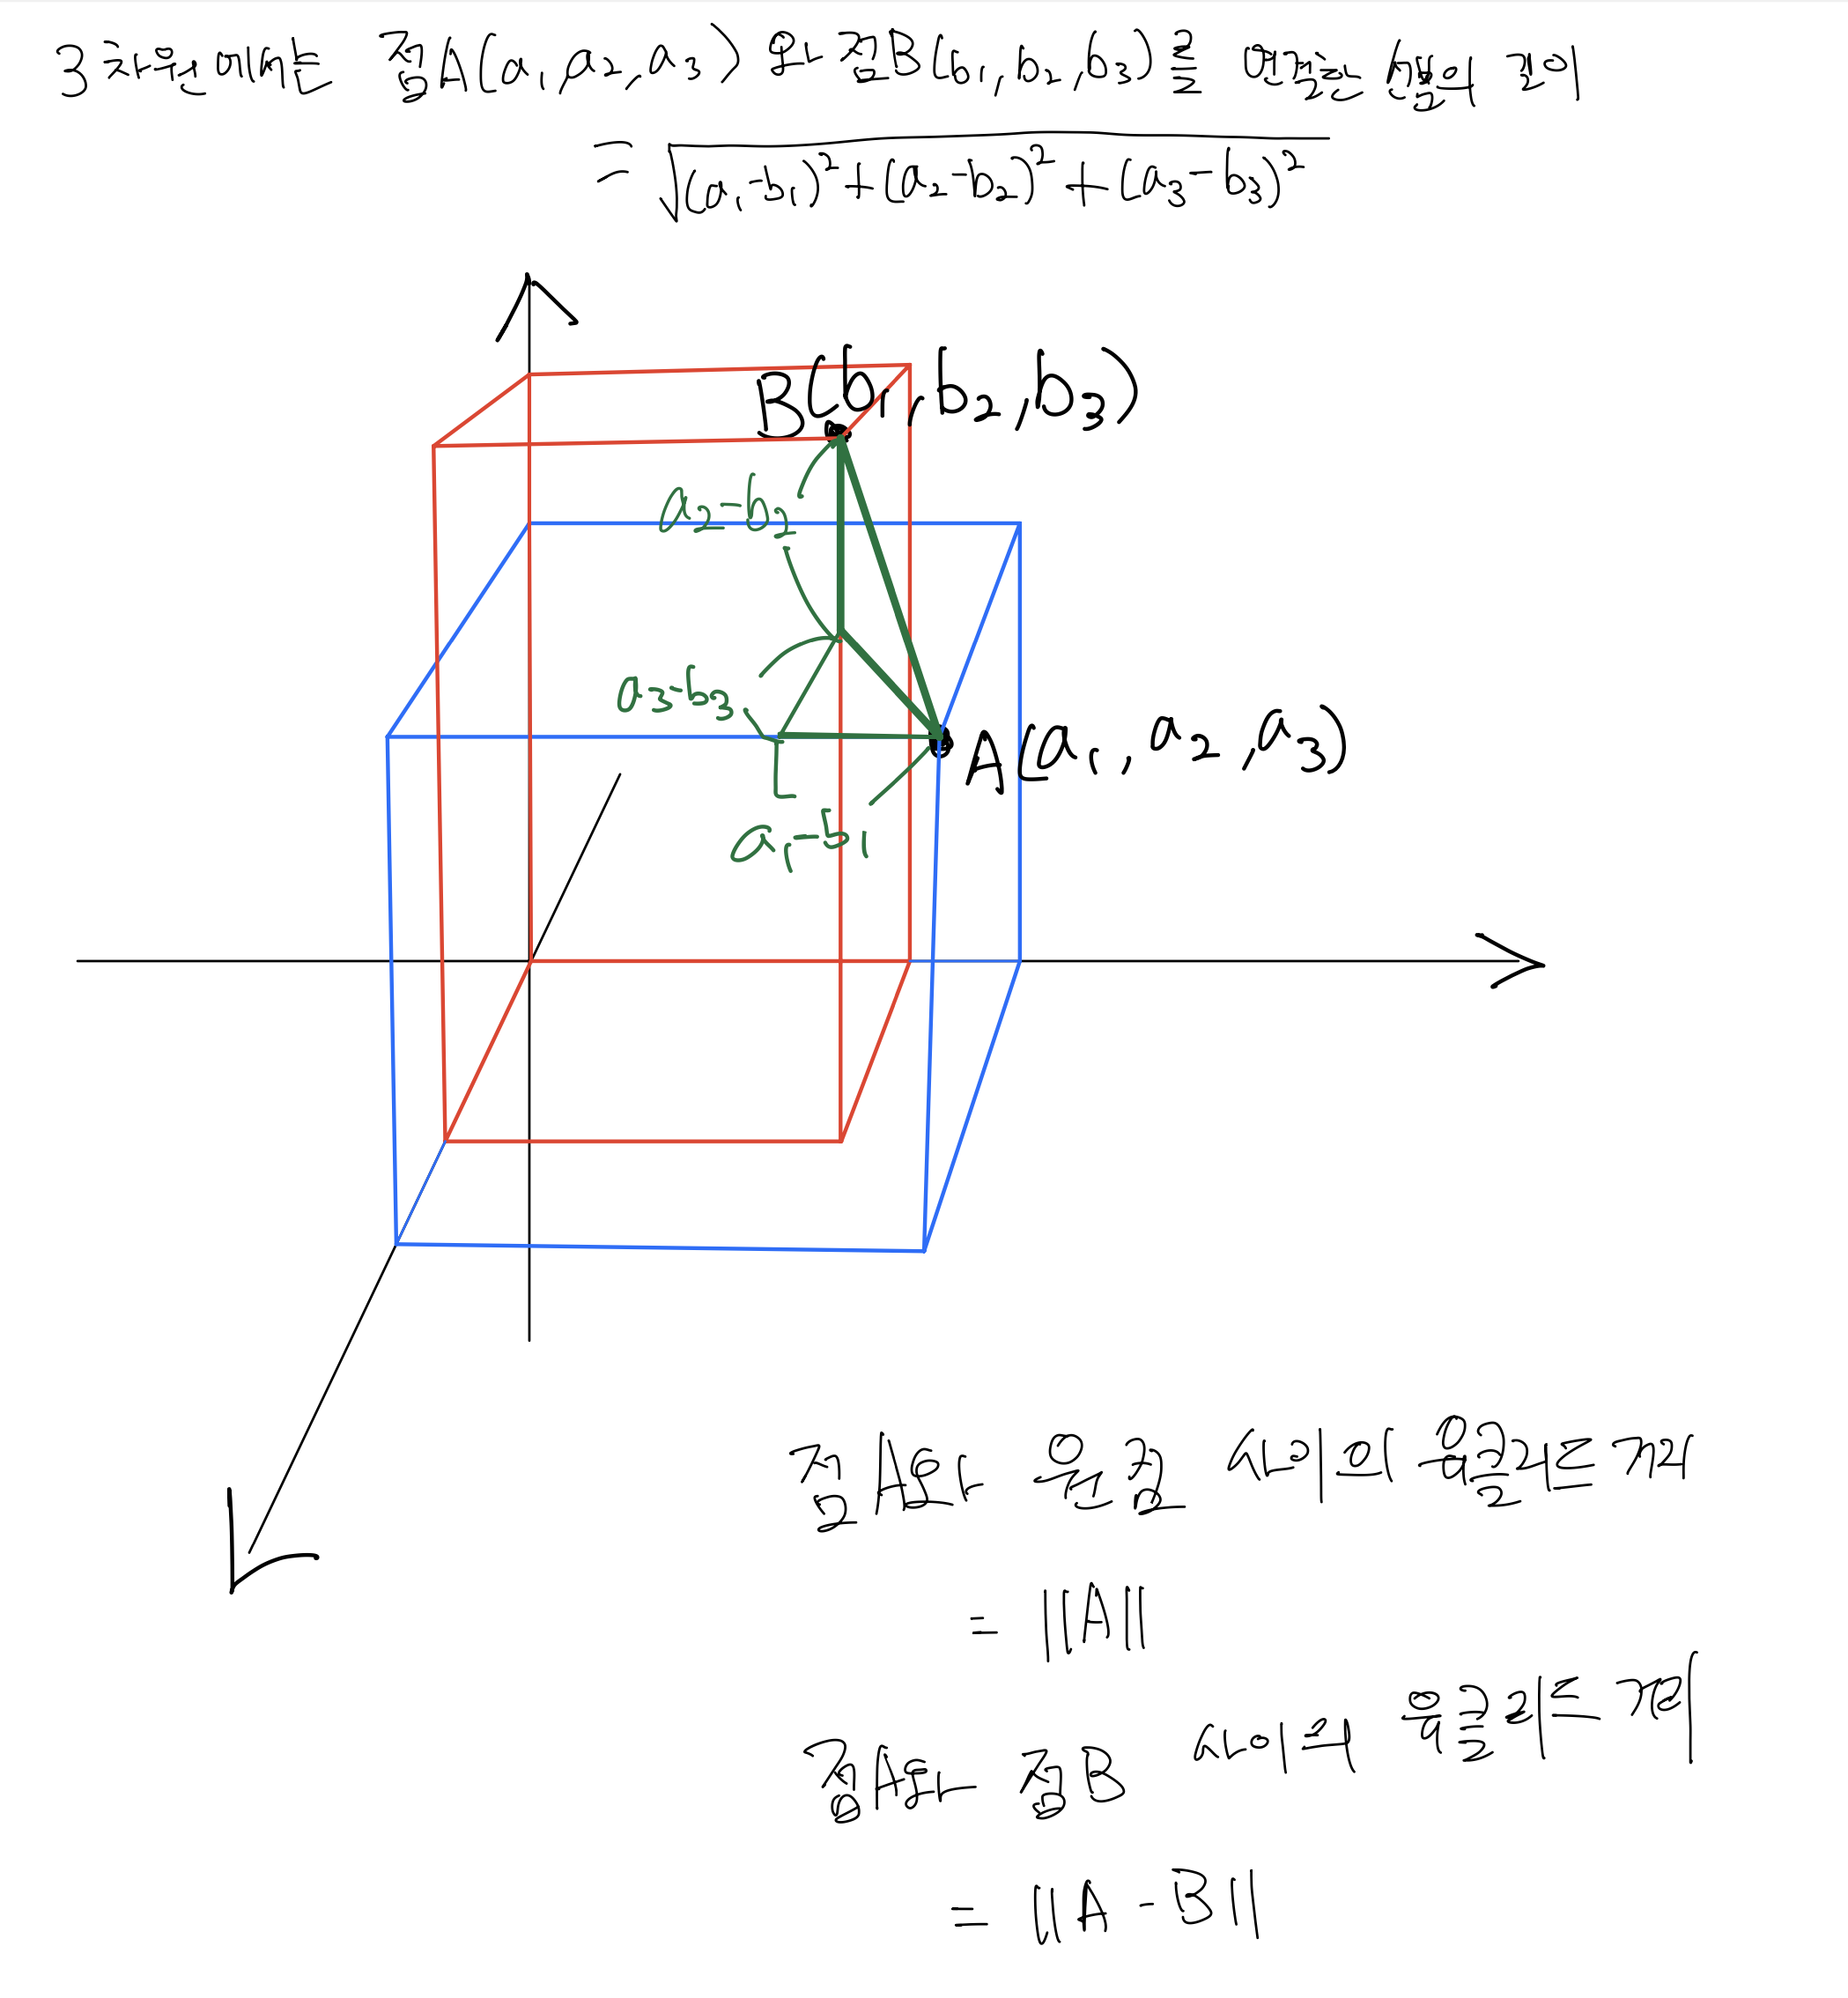 3차원에서도 점A(a₁,a₂,a₃)와 점B(b₁,b₂,b₃)를 잇는 선분의 길이
= √(a₁-b₁)²+(a₂-b₂)²+(a₃-b₃)²
B(b₁,b₂,b₃)
a₂-b₂
a₃-b₃
A(a₁,a₂,a₃)
a₁-b₁
점A와 원점 사이의 유클리드 거리
= ||A||
점A와 점B 사이의 유클리드 거리
= ||A-B||